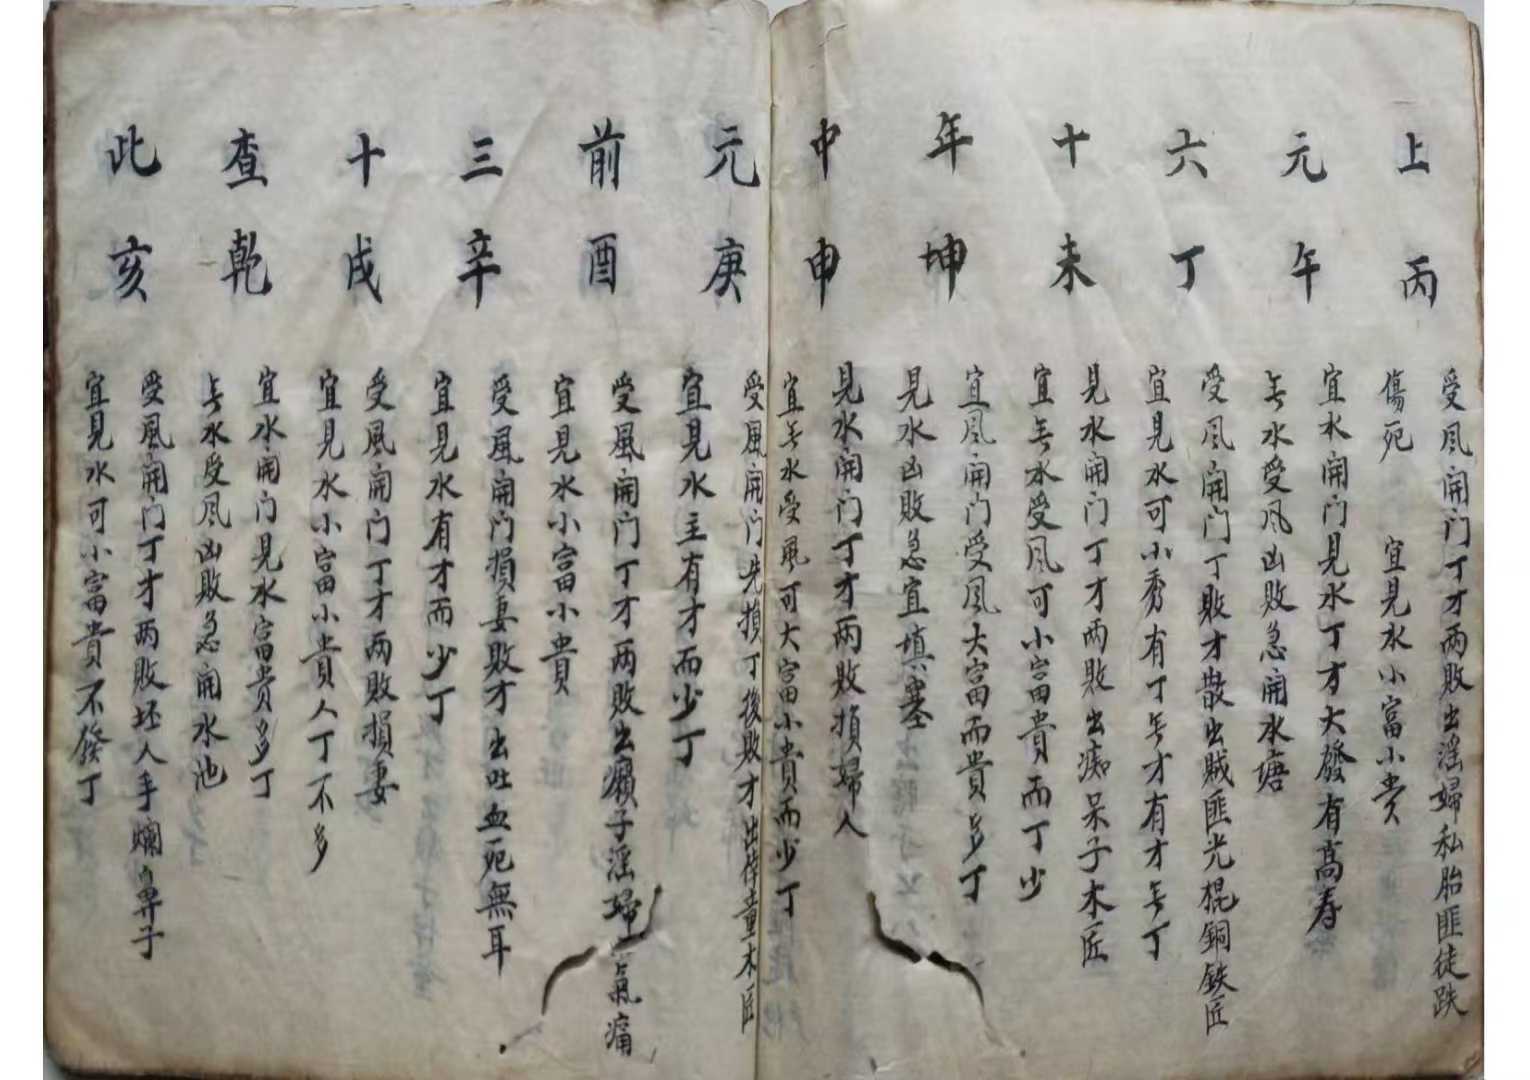 上元六十年中元前三十查此
丙午丁未坤申庚酉辛戌乾亥
受风開门丁才两敗出淫婦私胎匪徒跌
傷死 宜見水小富小贵
宜水開门見水丁才大發有高寿
无水受风凶敗急開水塘
受风開门丁敗才散出贼匪光棍銅鉄匠
宜見水可小秀有丁无才有才无丁
見水開门丁才两敗出痴呆子木匠
宜无水受风可小富貴而丁少
宜风開门受风大富而貴多丁
見水凶敗急宜填塞
見水開门丁才兩敗損婦人
宜无水受風可大富小貴而少丁
受風開门先損丁後敗才出侍童木匠
宜見水主有才而少丁
受風開门丁才两敗出癩子淫婦氣痛
宜見水小富小貴
受風開门損妻敗才出吐血死無耳
宜見水有才而少丁
受風開门丁才两敗損妻
宜見水小富小貴人丁不多
宜水開门見水富贵多丁
无水受风凶敗急開水池
受風開门丁才两敗坯人手爛鼻子
宜見水可小富貴不發丁